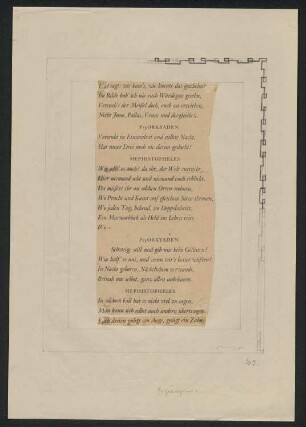 Da sagt: wir kann's, wie konnte das geschehn?
Im Bilde hab' ich nie euch Würdigste gesehn,
Versuch's der Meißel doch, euch zu erreichen,
Nicht Juno, Pallas, Venus und dergleichen.
PHORKYADEN
Versenkt in Einsamkeit und stillste Nacht,
Hat unser Drei noch nie daran gedacht!
MEPHISTOPHELES
Wie sollt' es auch? da ihr, der Welt entrückt,
Hier niemand seht und niemand euch erblickt.
Da müßtet ihr an solchen Orten wohnen,
Wo Pracht und Kunst auf gleichem Sitze thronen,
Wo jeden Tag, behend, im Doppelschritt,
Ein Marmorblock als Held ins Leben tritt.
Wo –
PHORKYADEN
Schweig still und gib uns kein Gelüsten!
Was hülf' es uns, und wenn wir's besser wüßten?
In Nacht geboren, Nächtlichem verwandt,
Beinah uns selbst, ganz allen unbekannt.
MEPHISTOPHELES
In solchem Fall hat es nicht viel zu sagen,
Man kann sich selbst auch andern übertragen.
Euch dreien gnügt ein Auge, gnügt ein Zahn,